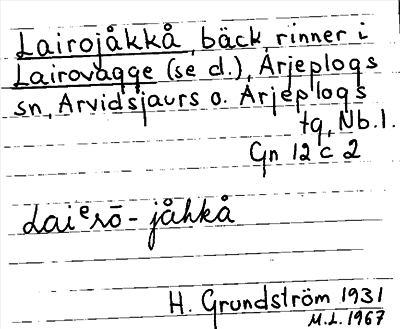 Lairojåkkå, bäck, rinner i
Lairovagge (se d.), Arjeplogs
sn, Arvidsjaurs o. Arjeplogs
tg, Nb.l.
Gn 12 c 2
Laiᵉrō-jåhkå
H. Grundström 1931
M.L. 1967